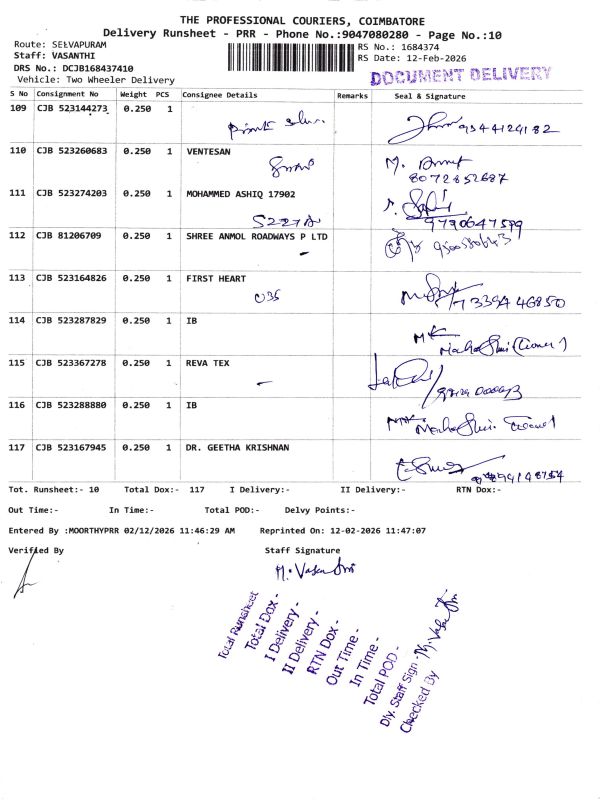 THE PROFESSIONAL COURIERS, COIMBATORE
Delivery Runsheet - PRR - Phone No.:9047080280 - Page No.:10
Route: SELVAPURAM
RS No.: 1684374
Staff: VASANTHI
RS Date: 12-Feb-2026
DRS No.: DCJB168437410
Vehicle: Two Wheeler Delivery
DOCUMENT DELIVERY
S No Consignment No Weight PCS Consignee Details Remarks Seal & Signature
109 CJB 523144273 0.250 1
9344124182
110 CJB 523260683 0.250 1 VENTESAN
M.
8072852687
111 CJB 523274203 0.250 1 MOHAMMED ASHIQ 17902
9790647599
112 CJB 81206709 0.250 1 SHREE ANMOL ROADWAYS P LTD
113 CJB 523164826 0.250 1 FIRST HEART
7339446850
114 CJB 523287829 0.250 1 IB
115 CJB 523367278 0.250 1 REVA TEX
116 CJB 523288880 0.250 1 IB
117 CJB 523167945 0.250 1 DR. GEETHA KRISHNAN
Tot. Runsheet:- 10 Total Dox:- 117 I Delivery:- II Delivery:- RTN Dox:-
Out Time:- In Time:- Total POD:- Delvy Points:-
Entered By :MOORTHYPRR 02/12/2026 11:46:29 AM Reprinted On: 12-02-2026 11:47:07
Verified By Staff Signature
M. Vasanthi
Total Runsheet
Total Dox -
I Delivery -
II Delivery -
RTN Dox -
Out Time -
In Time -
Total POD -
Dly. Staff Sign - M. Vasanthi
Checked By